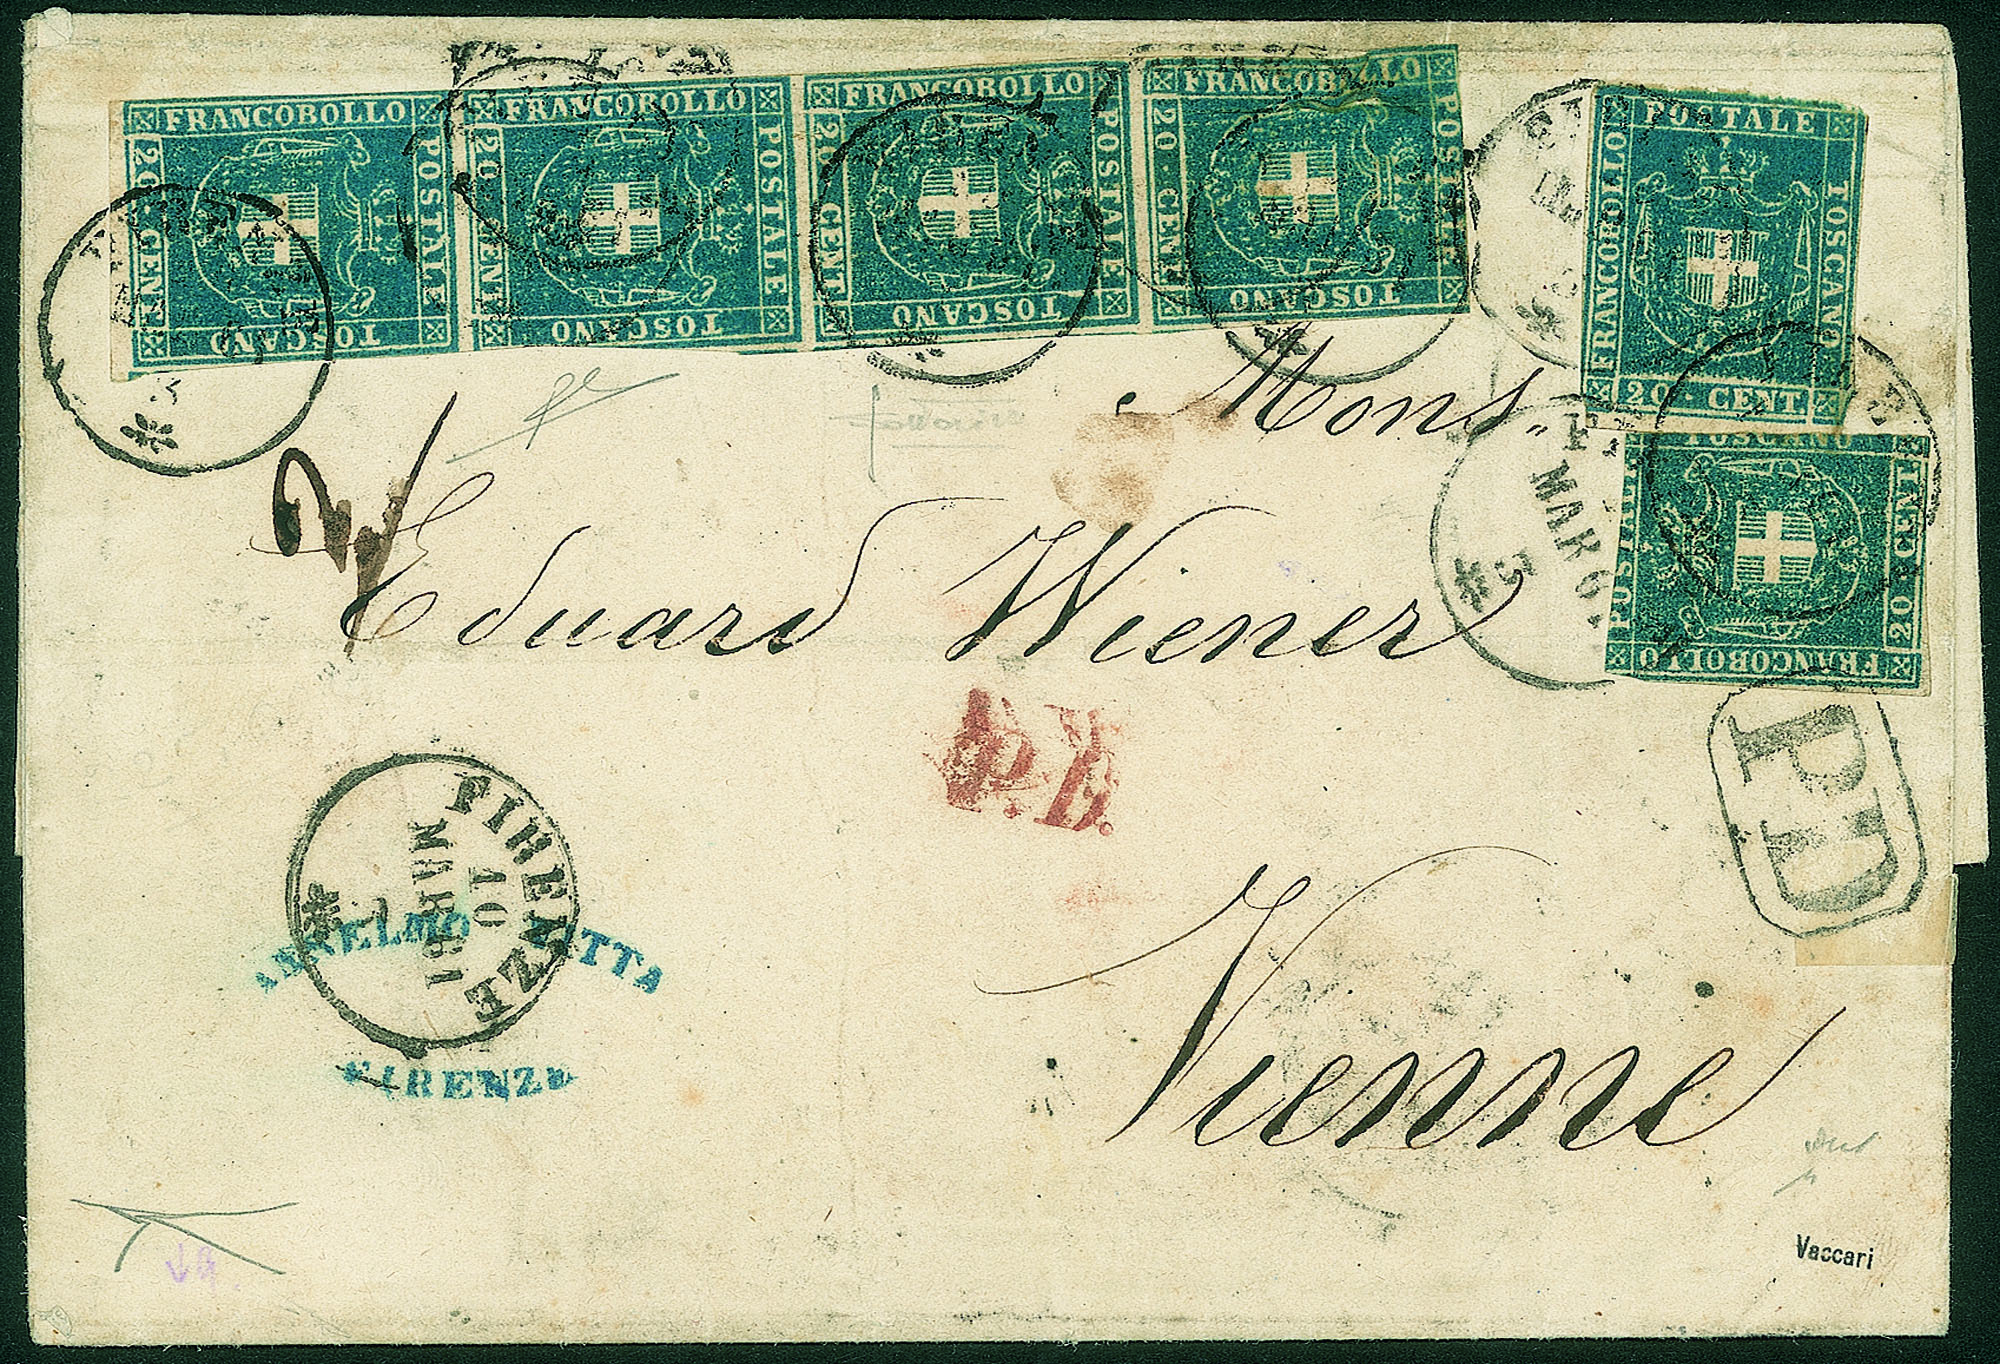 FRANCOBOLLO POSTALE TOSCANO 20 · CENT
FRANCOBOLLO POSTALE TOSCANO 20 · CENT
FRANCOBOLLO POSTALE TOSCANO 20 · CENT
FRANCOBOLLO POSTALE TOSCANO 20 · CENT
FRANCOBOLLO POSTALE TOSCANO 20 · CENT
FRANCOBOLLO POSTALE TOSCANO 20 CENT
MAR 61
5
Mons.
Eduard Wiener
P.D.
PD
FIRENZE
10
MAR 61
ANSELMO
FIRENZE
Vienne
Vaccari